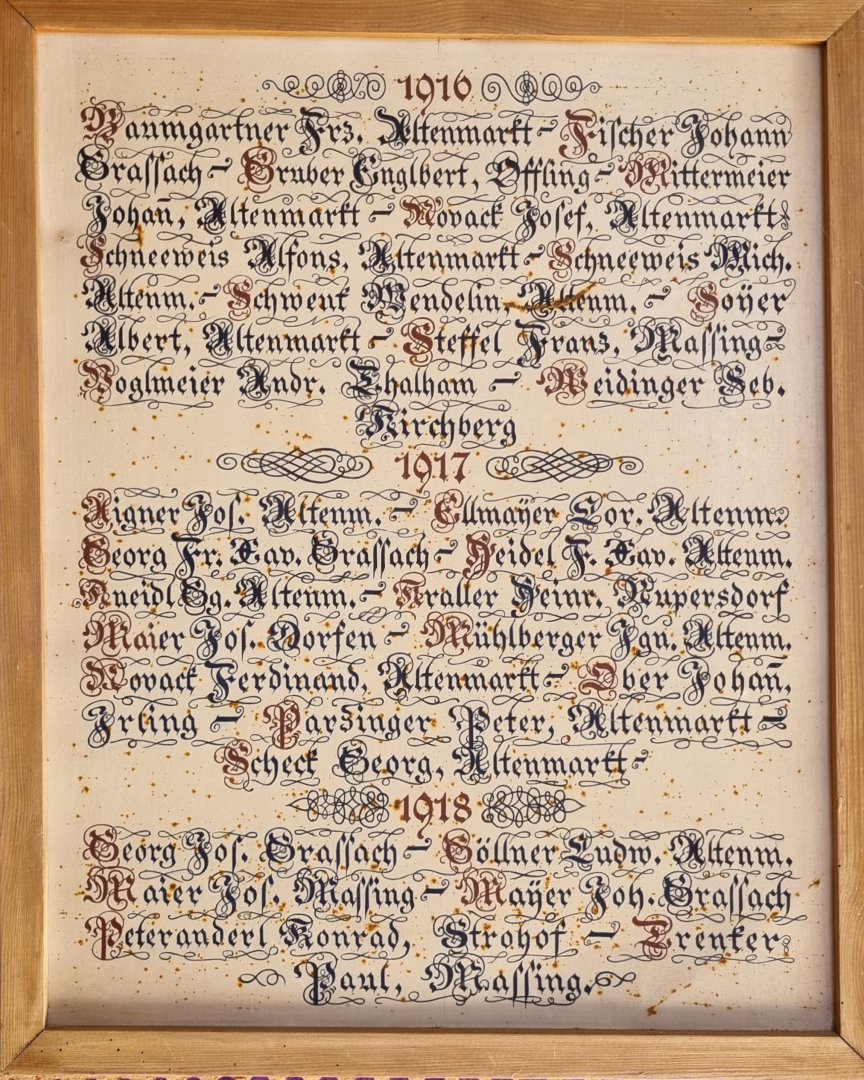 1916
Baumgartner Frz. Altenmarkt – Fischer Johann
Grassach – Gruber Englbert, Offling – Mittermeier
Johañ, Altenmarkt – Novack Josef, Altenmarkt
Schneeweis Alfons, Altenmarkt – Schneeweis Mich.
Altenm. – Schwenk Wendelin, Altenm. – Soÿer
Albert, Altenmarkt – Steffel Franz, Massing –
Voglmeier Andr. Thalham – Weidinger Seb.
Kirchberg
1917
Aigner Jos. Altenm. – Ellmaÿer Lor. Altenm.
Georg Fr. Xav. Grassach – Heidel F. Xav. Altenm.
Kneidl Gg. Altenm. – Kraller Heinr. Rupersdorf
Maier Jos. Dorfen – Mühlberger Ign. Altenm.
Novack Ferdinand, Altenmarkt – Ober Johañ,
Irling – Parzinger Peter, Altenmarkt –
Scheck Georg, Altenmarkt –
1918
Georg Jos. Grassach – Göllner Ludw. Altenm.
Maier Jos. Massing – Maÿer Joh. Grassach
Peteranderl Konrad, Strohof – Trenker
Paul, Massing.